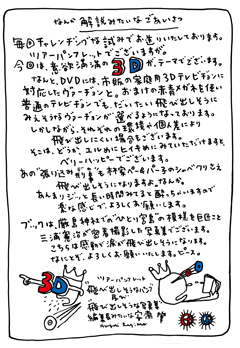 なんか解説みたいなごあいさつ
毎回チャレンジングな試みでお送りしております。
ツアーパンフレットでございますが。
今回は、意欲満満の3Dがテーマでございます。
なんと、DVDには、市販の家庭用3Dテレビジョンに
対応したヴァージョンと。おまけの赤青がネを使い
普通のテレビジョンでも、だいたい飛び出しそうに
みえそうなヴァージョンが選べるようになっております。
しかしながら、それぞれの環境や個人差により
飛び出しにくい場合もございます。
そこは、どうか、ユルめにヒイキめにみていただけますと、
ベリーハッピーでございます。
飛び出しそうになりますよ。なんか。
あんまりジッと長い時間みてると酔っちゃいますので
お願いします。
ブックは、厳島神社でのひとり写真の模様を巨匠こと
三浦憲治が撮影した写真集でございます。
こちらは感動の涙が飛び出しそうになります。
なにとぞ、よろしくお願いいたします。ピース。
3D
ツアーパンフレット
飛び出しそうなパンフ
飛び出そうな写真集
編集長みたいな